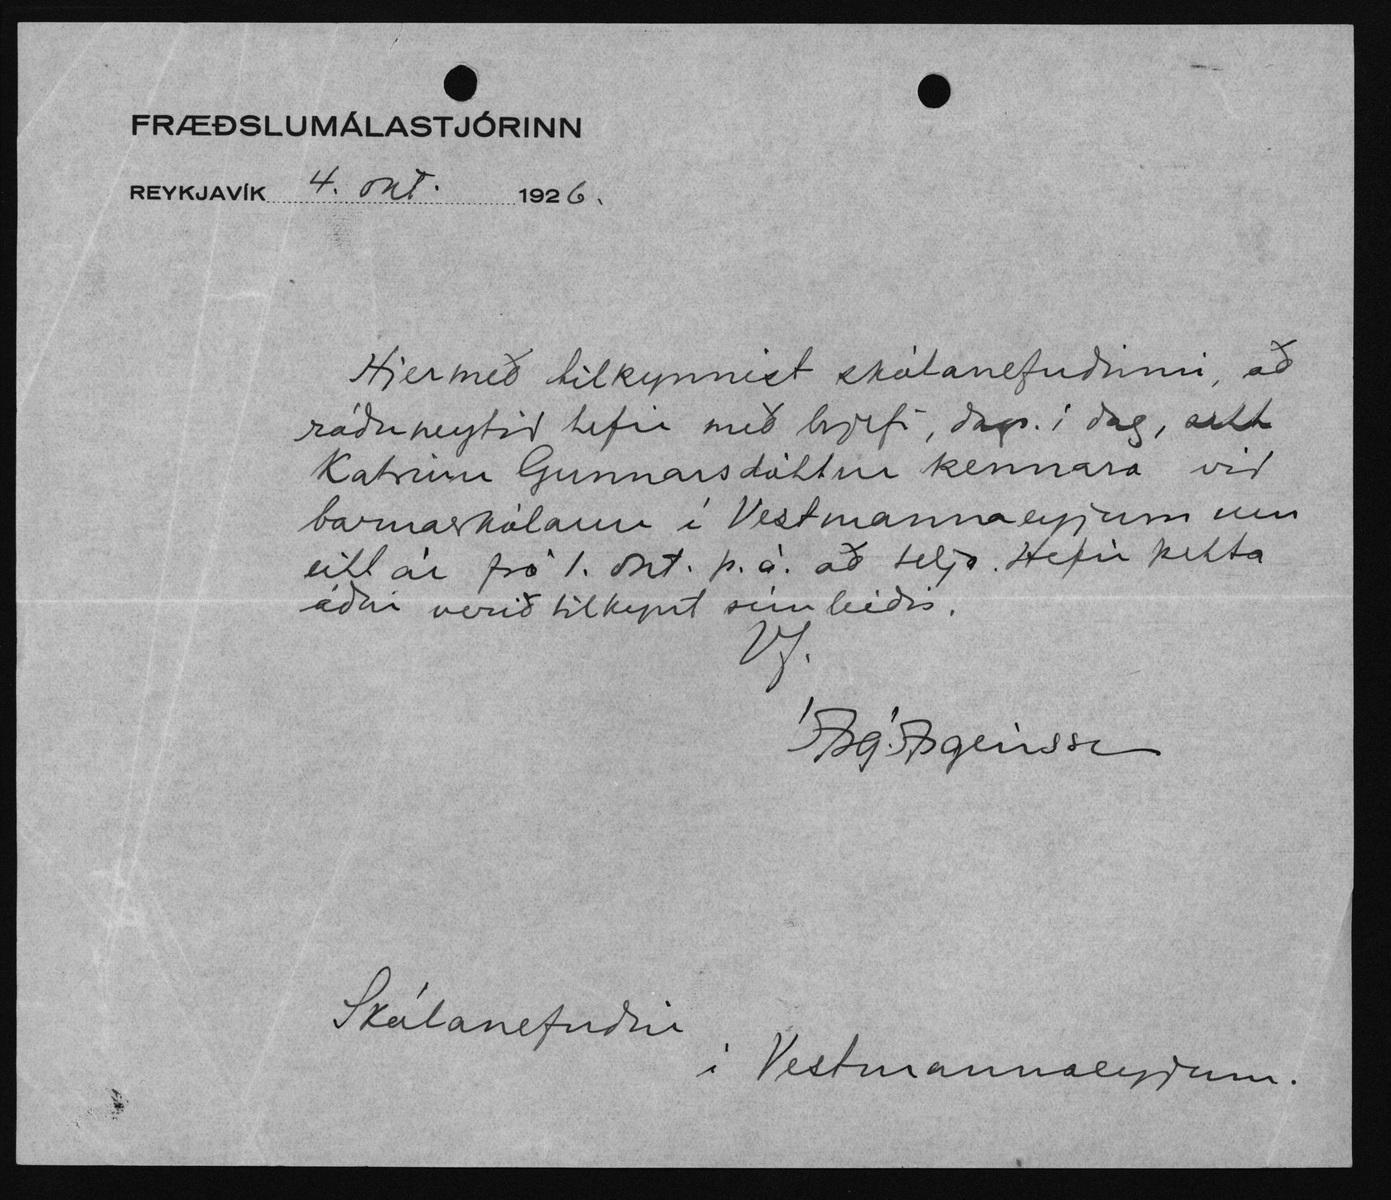 FRÆÐSLUMÁLASTJÓRINN
REYKJAVÍK 4. okt. 1926.
Hjermeð tilkynnist skólanefndinni, að
ráðuneytið hefir með brjefi, dags. í dag, sett
Katrínu Gunnarsdóttur kennara við
barnaskólann í Vestmannaeyjum um
eitt ár frá 1. okt. þ. á. að telja. Hefir þetta
áður verið tilkynt símleiðis.
Vf.
Ásg. Ásgeirsson
Skólanefndin
í Vestmannaeyjum.